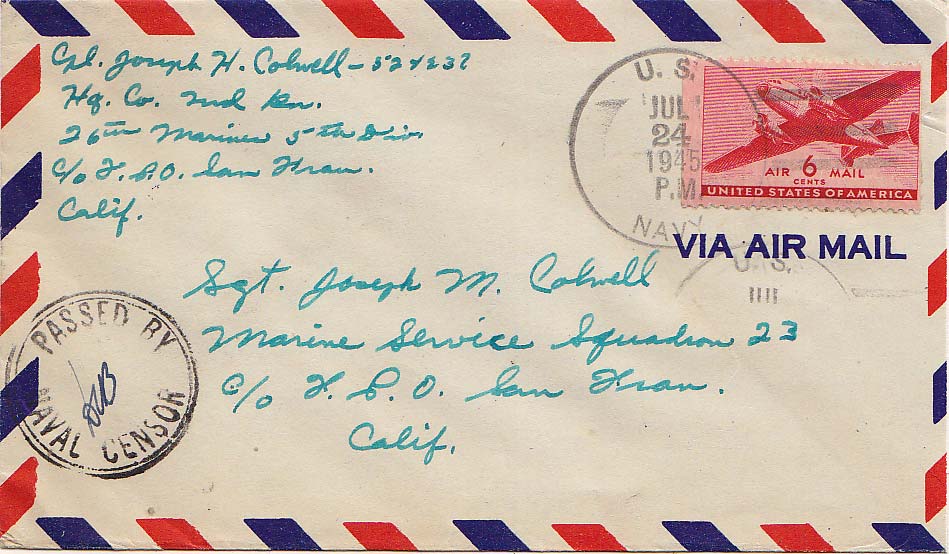 Cpl. Joseph H. Colwell - 524237
Hq. Co. 2nd Bn.
26th Marines 5th Div.
c/o F.P.O. San Fran.
Calif.
U. S.
JUL
24
1945
P.M.
NAVY
AIR 6 MAIL
CENTS
UNITED STATES OF AMERICA
VIA AIR MAIL
U. S.
Sgt. Joseph M. Colwell
Marine Service Squadron 23
c/o F. P. O. San Fran.
Calif.
PASSED BY
NAVAL CENSOR